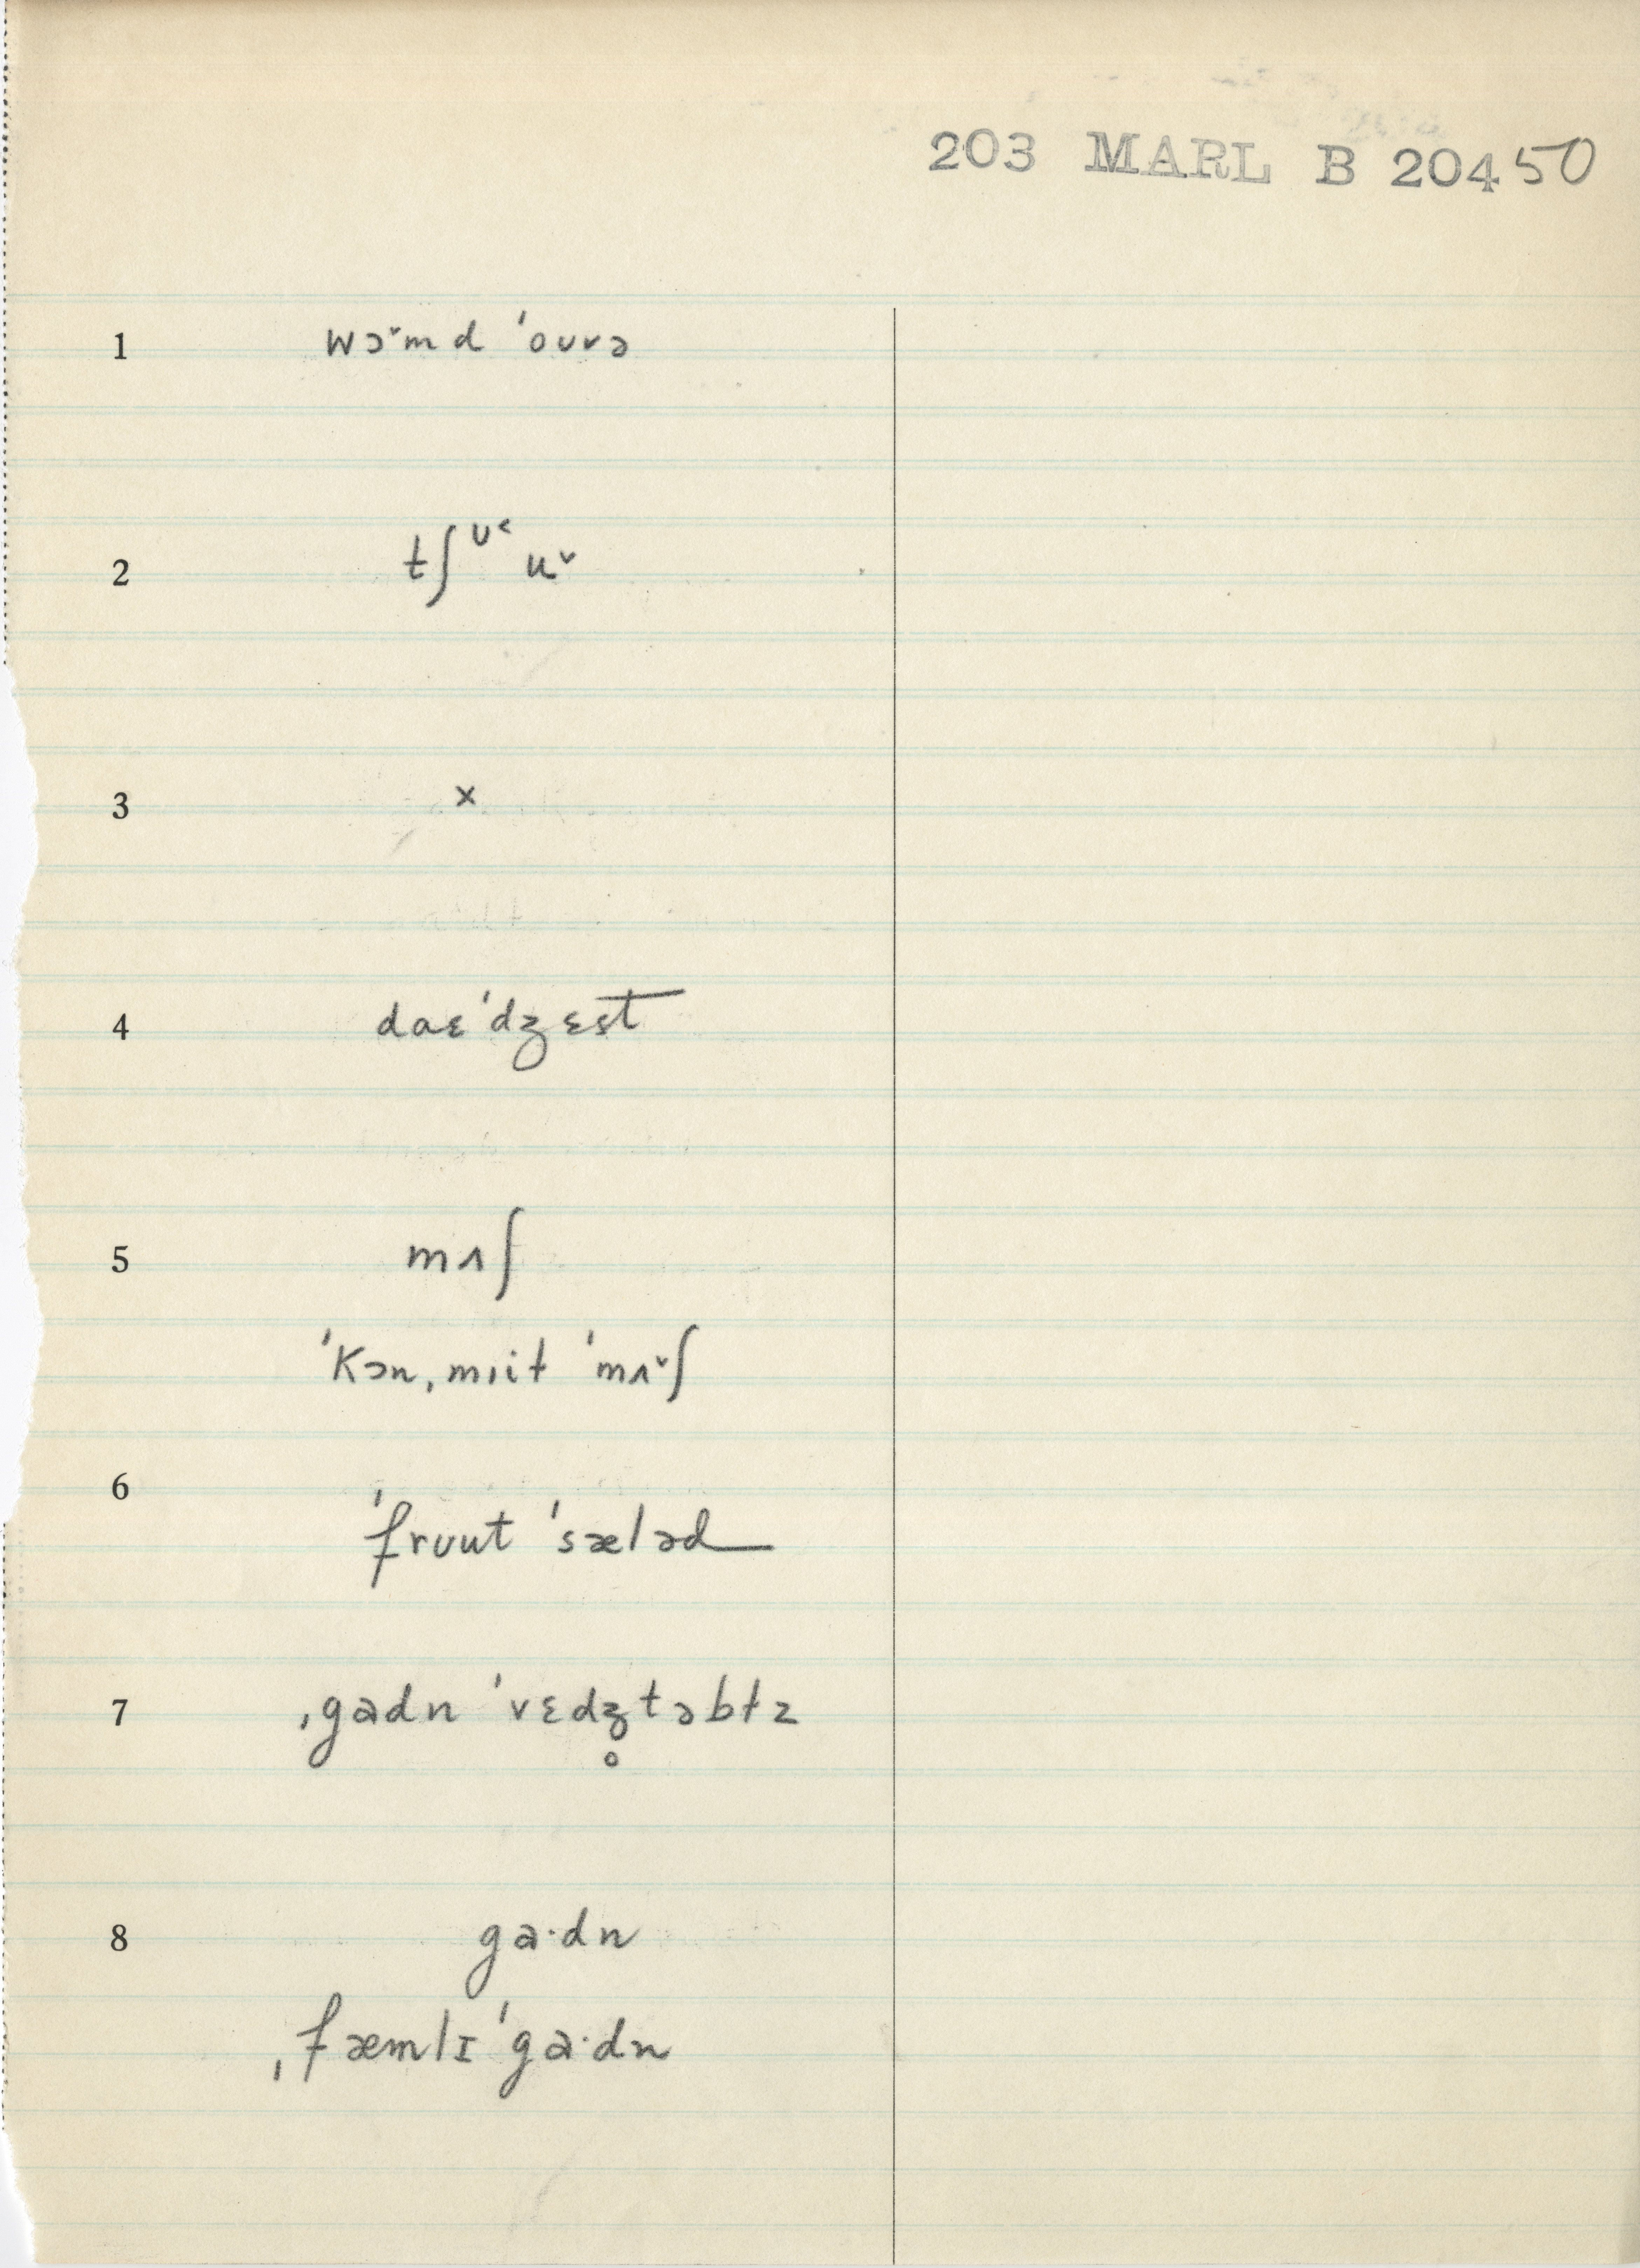 203 MARL B 20450
1 wɔ˅md ˈoʊvə
2 tʃʊ˂ u˅
3 x
4 daɛˈdʒɛst
5 mʌʃ
ˈkɔnˌmiit ˈmʌ˅ʃ
6 ˈfrʊut ˈsæləd
7 ˌgadn ˈvɛdʒ̥təbɫz
8 ga·dn
ˌfæmlɪˈga·dn